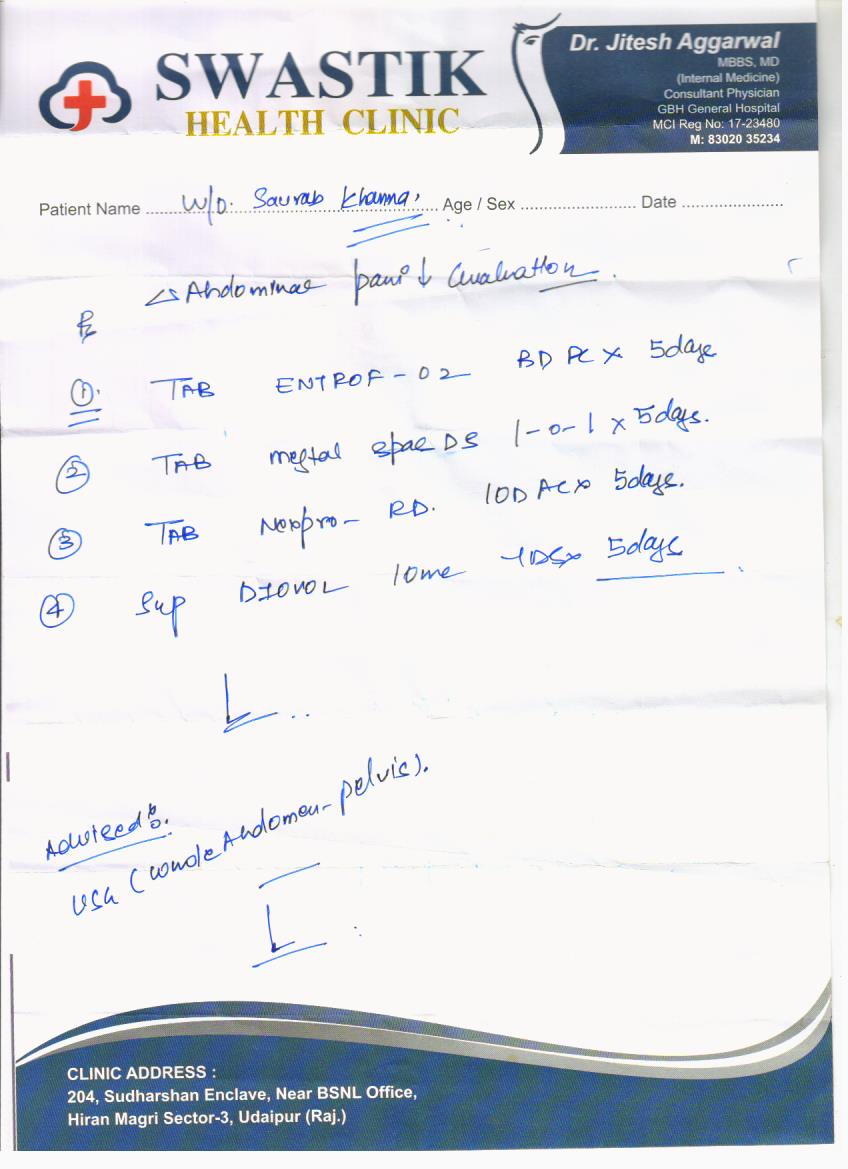 SWASTIK
HEALTH CLINIC
Dr. Jitesh Aggarwal
MBBS, MD
(Internal Medicine)
Consultant Physician
GBH General Hospital
MCI Reg No: 17-23480
M: 83020 35234
Patient Name ........ W/o. Saurab Khanna, ........ Age / Sex ........................ Date ......................
Abdominal pain ↓ Evaluation.
Rx
① TAB ENTROF-02 BD PC x 5days
② TAB Meftal spas DS 1-0-1 x 5days.
③ TAB Nexpro-RD. 1OD AC x 5days.
④ Syp DIOVOL 10ml TDS x 5days.
Advised:
USG (whole Abdomen-pelvis).
CLINIC ADDRESS :
204, Sudharshan Enclave, Near BSNL Office,
Hiran Magri Sector-3, Udaipur (Raj.)